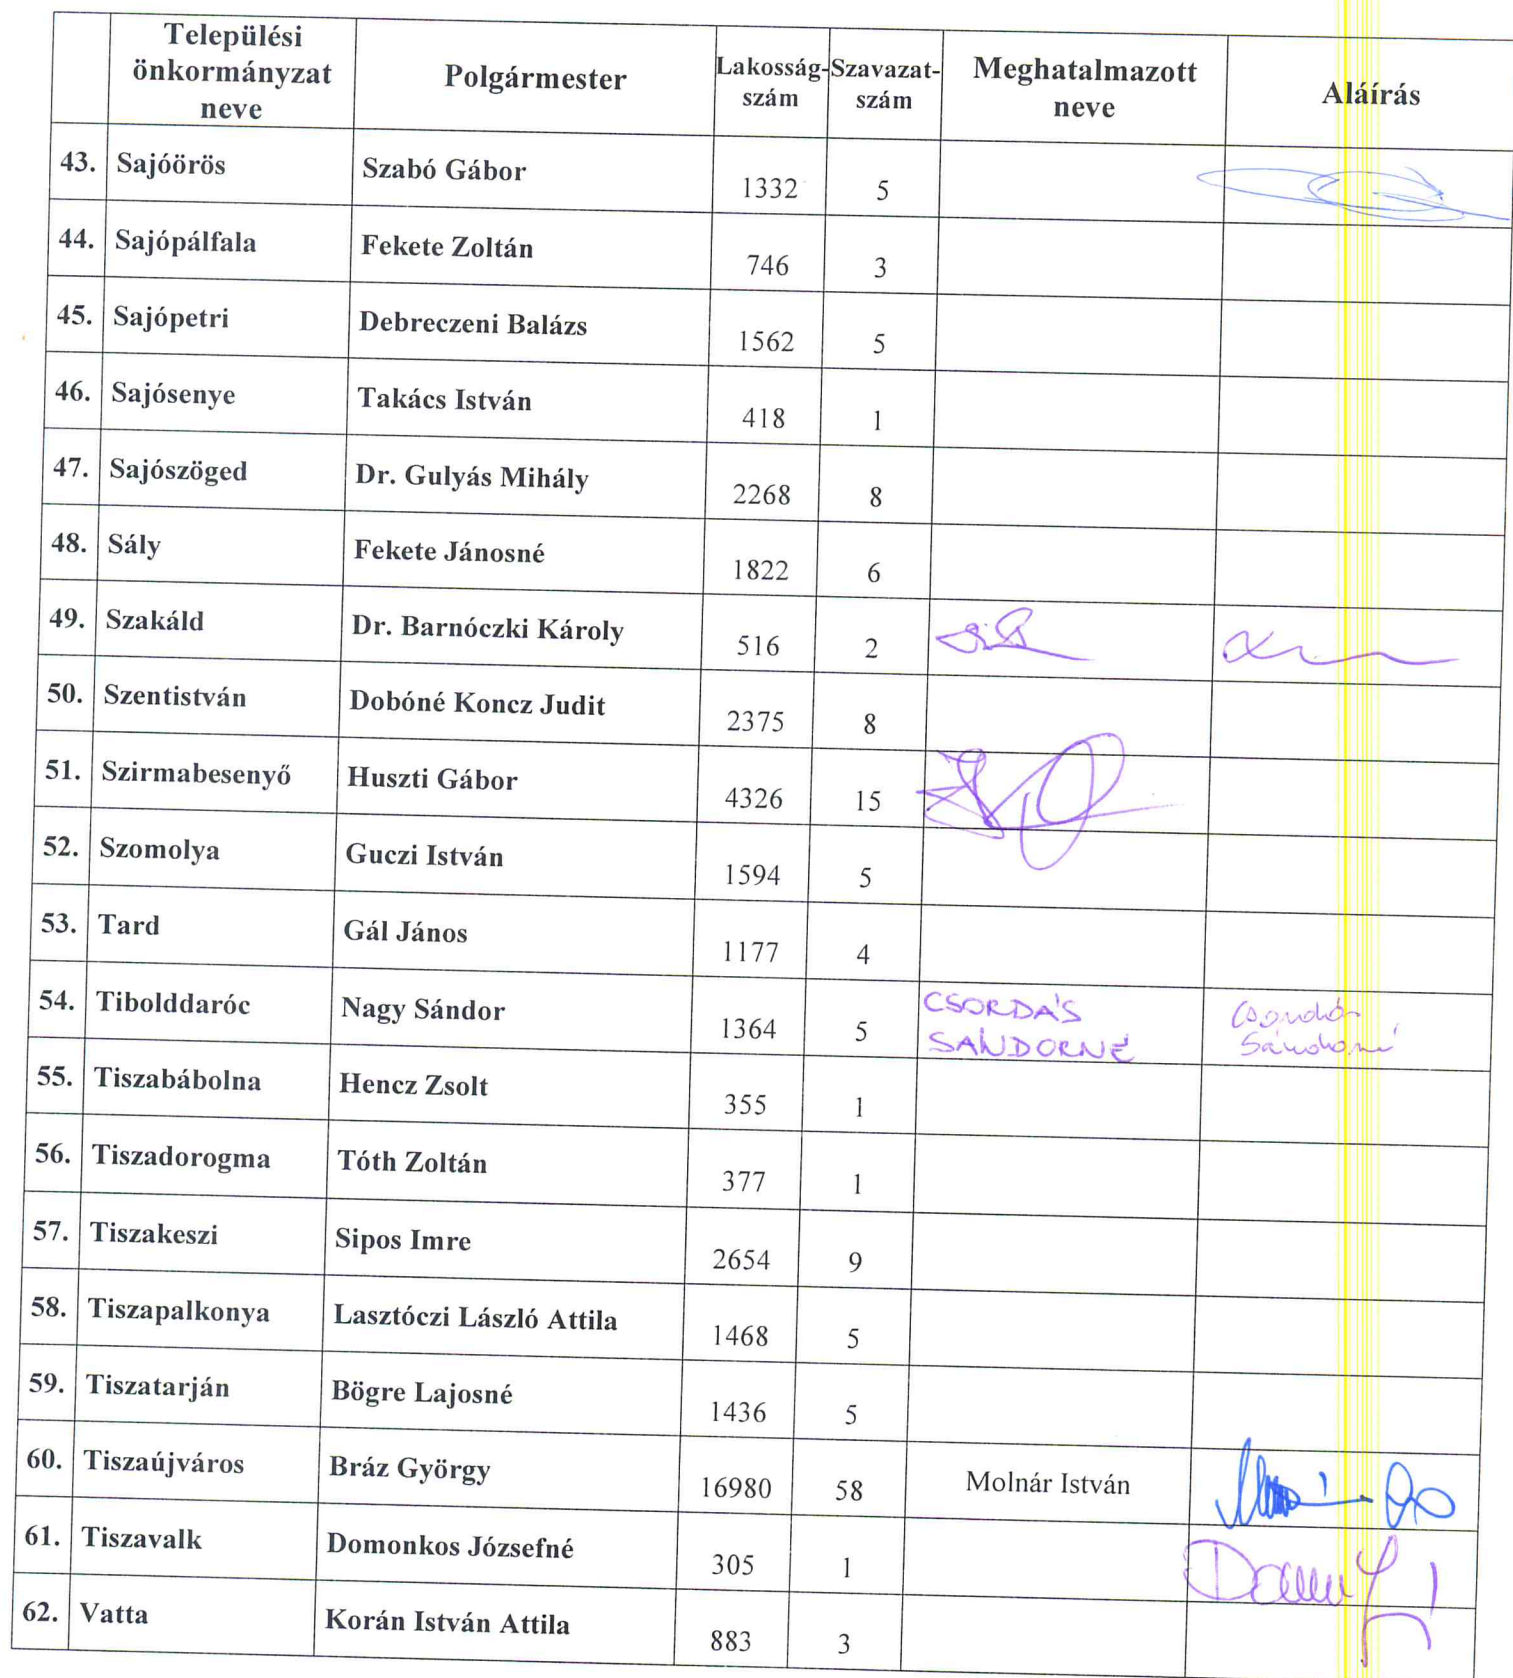 Települési önkormányzat neve Polgármester Lakosság-szám Szavazat-szám Meghatalmazott neve Aláírás
43. Sajóörös Szabó Gábor 1332 5
44. Sajópálfala Fekete Zoltán 746 3
45. Sajópetri Debreczeni Balázs 1562 5
46. Sajósenye Takács István 418 1
47. Sajószöged Dr. Gulyás Mihály 2268 8
48. Sály Fekete Jánosné 1822 6
49. Szakáld Dr. Barnóczki Károly 516 2
50. Szentistván Dobóné Koncz Judit 2375 8
51. Szirmabesenyő Huszti Gábor 4326 15
52. Szomolya Guczi István 1594 5
53. Tard Gál János 1177 4
54. Tibolddaróc Nagy Sándor 1364 5 CSORDÁS SÁNDORNÉ Csordás Sándorné
55. Tiszabábolna Hencz Zsolt 355 1
56. Tiszadorogma Tóth Zoltán 377 1
57. Tiszakeszi Sipos Imre 2654 9
58. Tiszapalkonya Lasztóczi László Attila 1468 5
59. Tiszatarján Bögre Lajosné 1436 5
60. Tiszaújváros Bráz György 16980 58 Molnár István
61. Tiszavalk Domonkos Józsefné 305 1
62. Vatta Korán István Attila 883 3